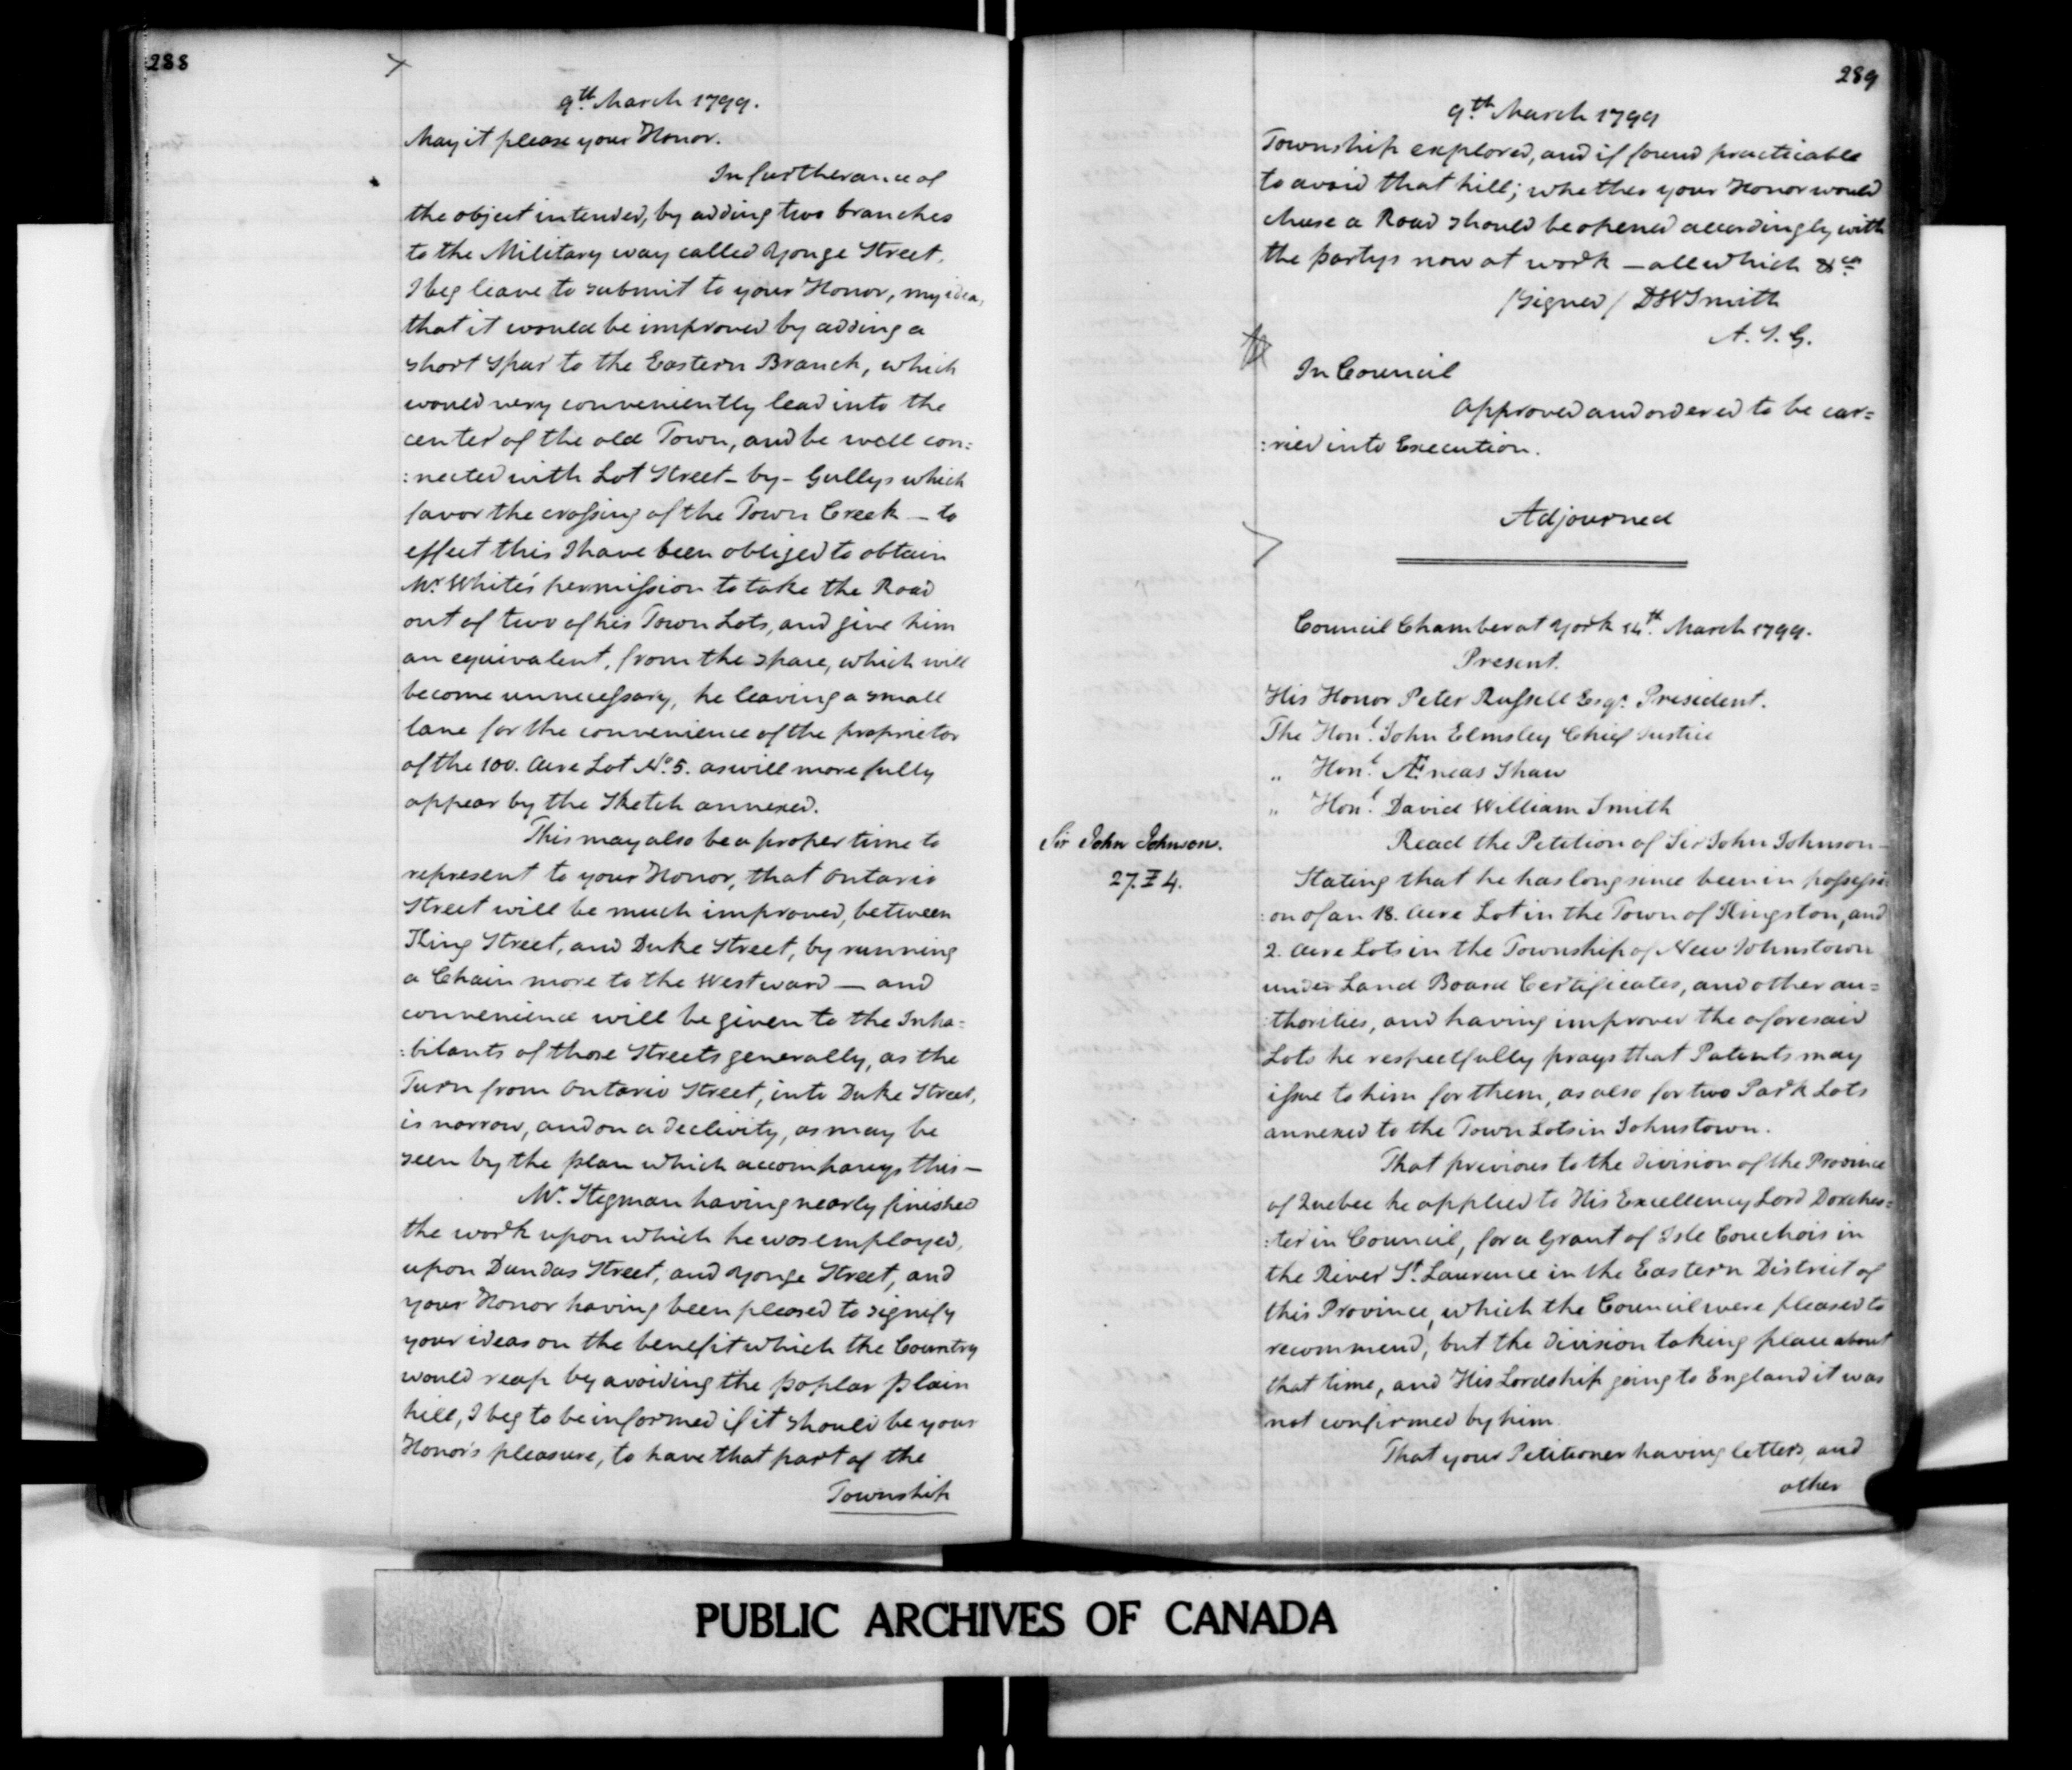 288
9th March 1799.
May it please your Honor.
In furtherance of
the object intended, by adding two branches
to the Military way called Yonge Street,
I beg leave to submit to your Honor, my idea,
that it would be improved by adding a
short spur to the Eastern Branch, which
would very conveniently lead into the
center of the old Town, and be well con=
:nected with Lot Street - by - Gullys which
favor the crossing of the Town Creek - to
effect this I have been obliged to obtain
Mr. White's permission to take the Road
out of two of his Town Lots, and give him
an equivalent, from the space, which will
become unnecessary, he leaving a small
lane for the convenience of the proprietor
of the 100. Acre Lot No. 5. as will more fully
appear by the Sketch annexed.
This may also be a proper time to
represent to your Honor, that Ontario
Street will be much improved, between
King Street, and Duke Street, by running
a Chain more to the Westward — and
convenience will be given to the Inha=
:bitants of those Streets generally, as the
Turn from Ontario Street, into Duke Street,
is narrow, and on a declivity, as may be
seen by the plan which accompanys this —
Mr. Stegman having nearly finished
the work upon which he was employed,
upon Dundas Street, and Yonge Street, and
your Honor having been pleased to signify
your ideas on the benefit which the Country
would reap by avoiding the poplar plain
hill, I beg to be informed if it should be your
Honor's pleasure, to have that part of the
Township
289
9th March 1799
Township explored, and if found practicable
to avoid that hill; whether your Honor would
chuse a Road should be opened accordingly with
the partys now at work — all which &ca
/Signed/ DW Smith
A. S. G.
In Council
Approved and ordered to be car=
:ried into Execution.
Adjourned
Council Chamber at York 14th March 1799.
Present.
His Honor Peter Russell Esqr. President.
The Honl. John Elmsley Chief Justice
„ Honl. Æneas Shaw
„ Honl. David William Smith
Sir John Johnson.
27.
Read the Petition of Sir John Johnson -
Stating that he has long since been in possessi
:on of an 18. Acre Lot in the Town of Kingston, and
2. Acre Lots in the Township of New Johnstown
under Land Board Certificates, and other au=
:thorities, and having improved the aforesaid
Lots he respectfully prays that Patents may
issue to him for them, as also for two Park Lots
annexed to the Town Lots in Johnstown.
That previous to the division of the Province
of Quebec he applied to His Excellency Lord Dorches=
:ter in Council, for a Grant of Isle Couchois in
the River St. Laurence in the Eastern District of
this Province, which the Council were pleased to
recommend, but the division taking place about
that time, and His Lordship going to England it was
not confirmed by him.
That your Petitioner having letters, and
other
PUBLIC ARCHIVES OF CANADA